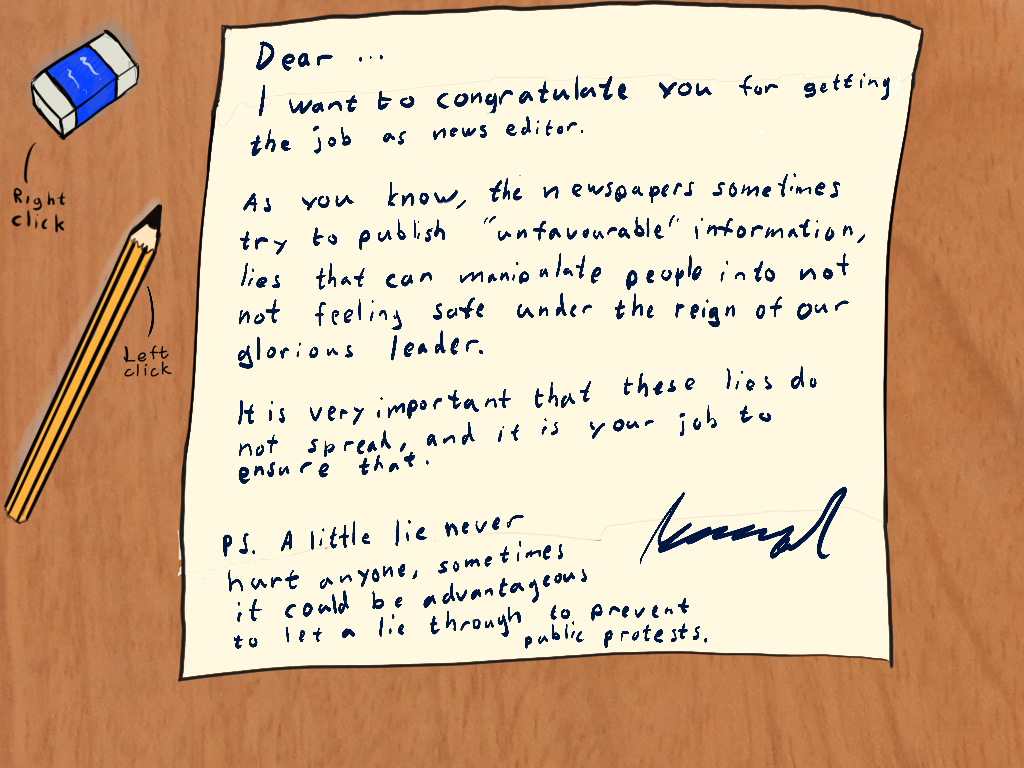 Dear ...
I want to congratulate you for getting
the job as news editor.
As you know, the newspapers sometimes
try to publish "unfavourable" information,
lies that can manipulate people into not
not feeling safe under the reign of our
glorious leader.
It is very important that these lies do
not spread, and it is your job to
ensure that.
PS. A little lie never
hurt anyone, sometimes
it could be advantageous
to let a lie through to prevent
public protests.
Right
click
Left
click